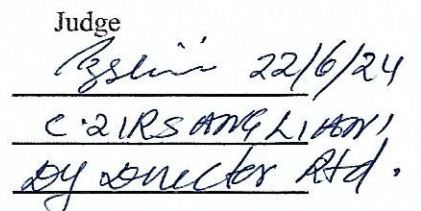 Judge
22/6/24
C. ZIRSANGLIANI
Dy Director Rtd.